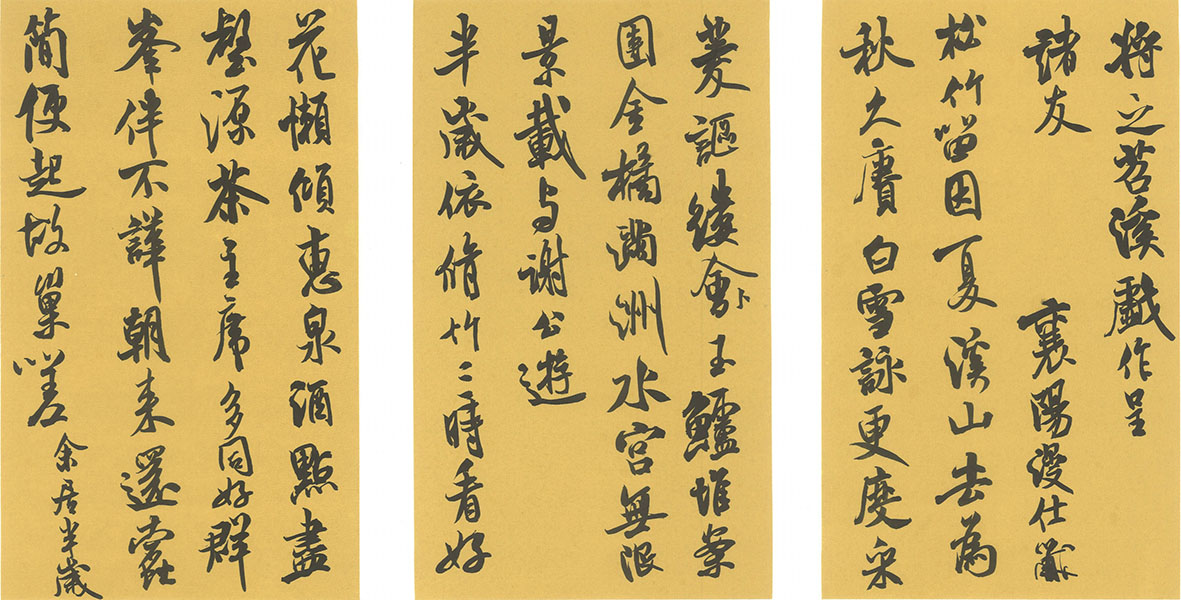 將之苕溪戲作呈
諸友 襄陽漫仕黻
松竹留因夏溪山去為
秋久賡白雪詠更度采
菱謳縷會玉鱸堆案
團金橘滿洲水宮無限
景載与謝公遊
半歲依脩竹三時看好
花懶傾惠泉酒點盡
壑源茶主席多同好群
峯伴不譁朝来還蠹
簡便起故巢嗟 余居半歲